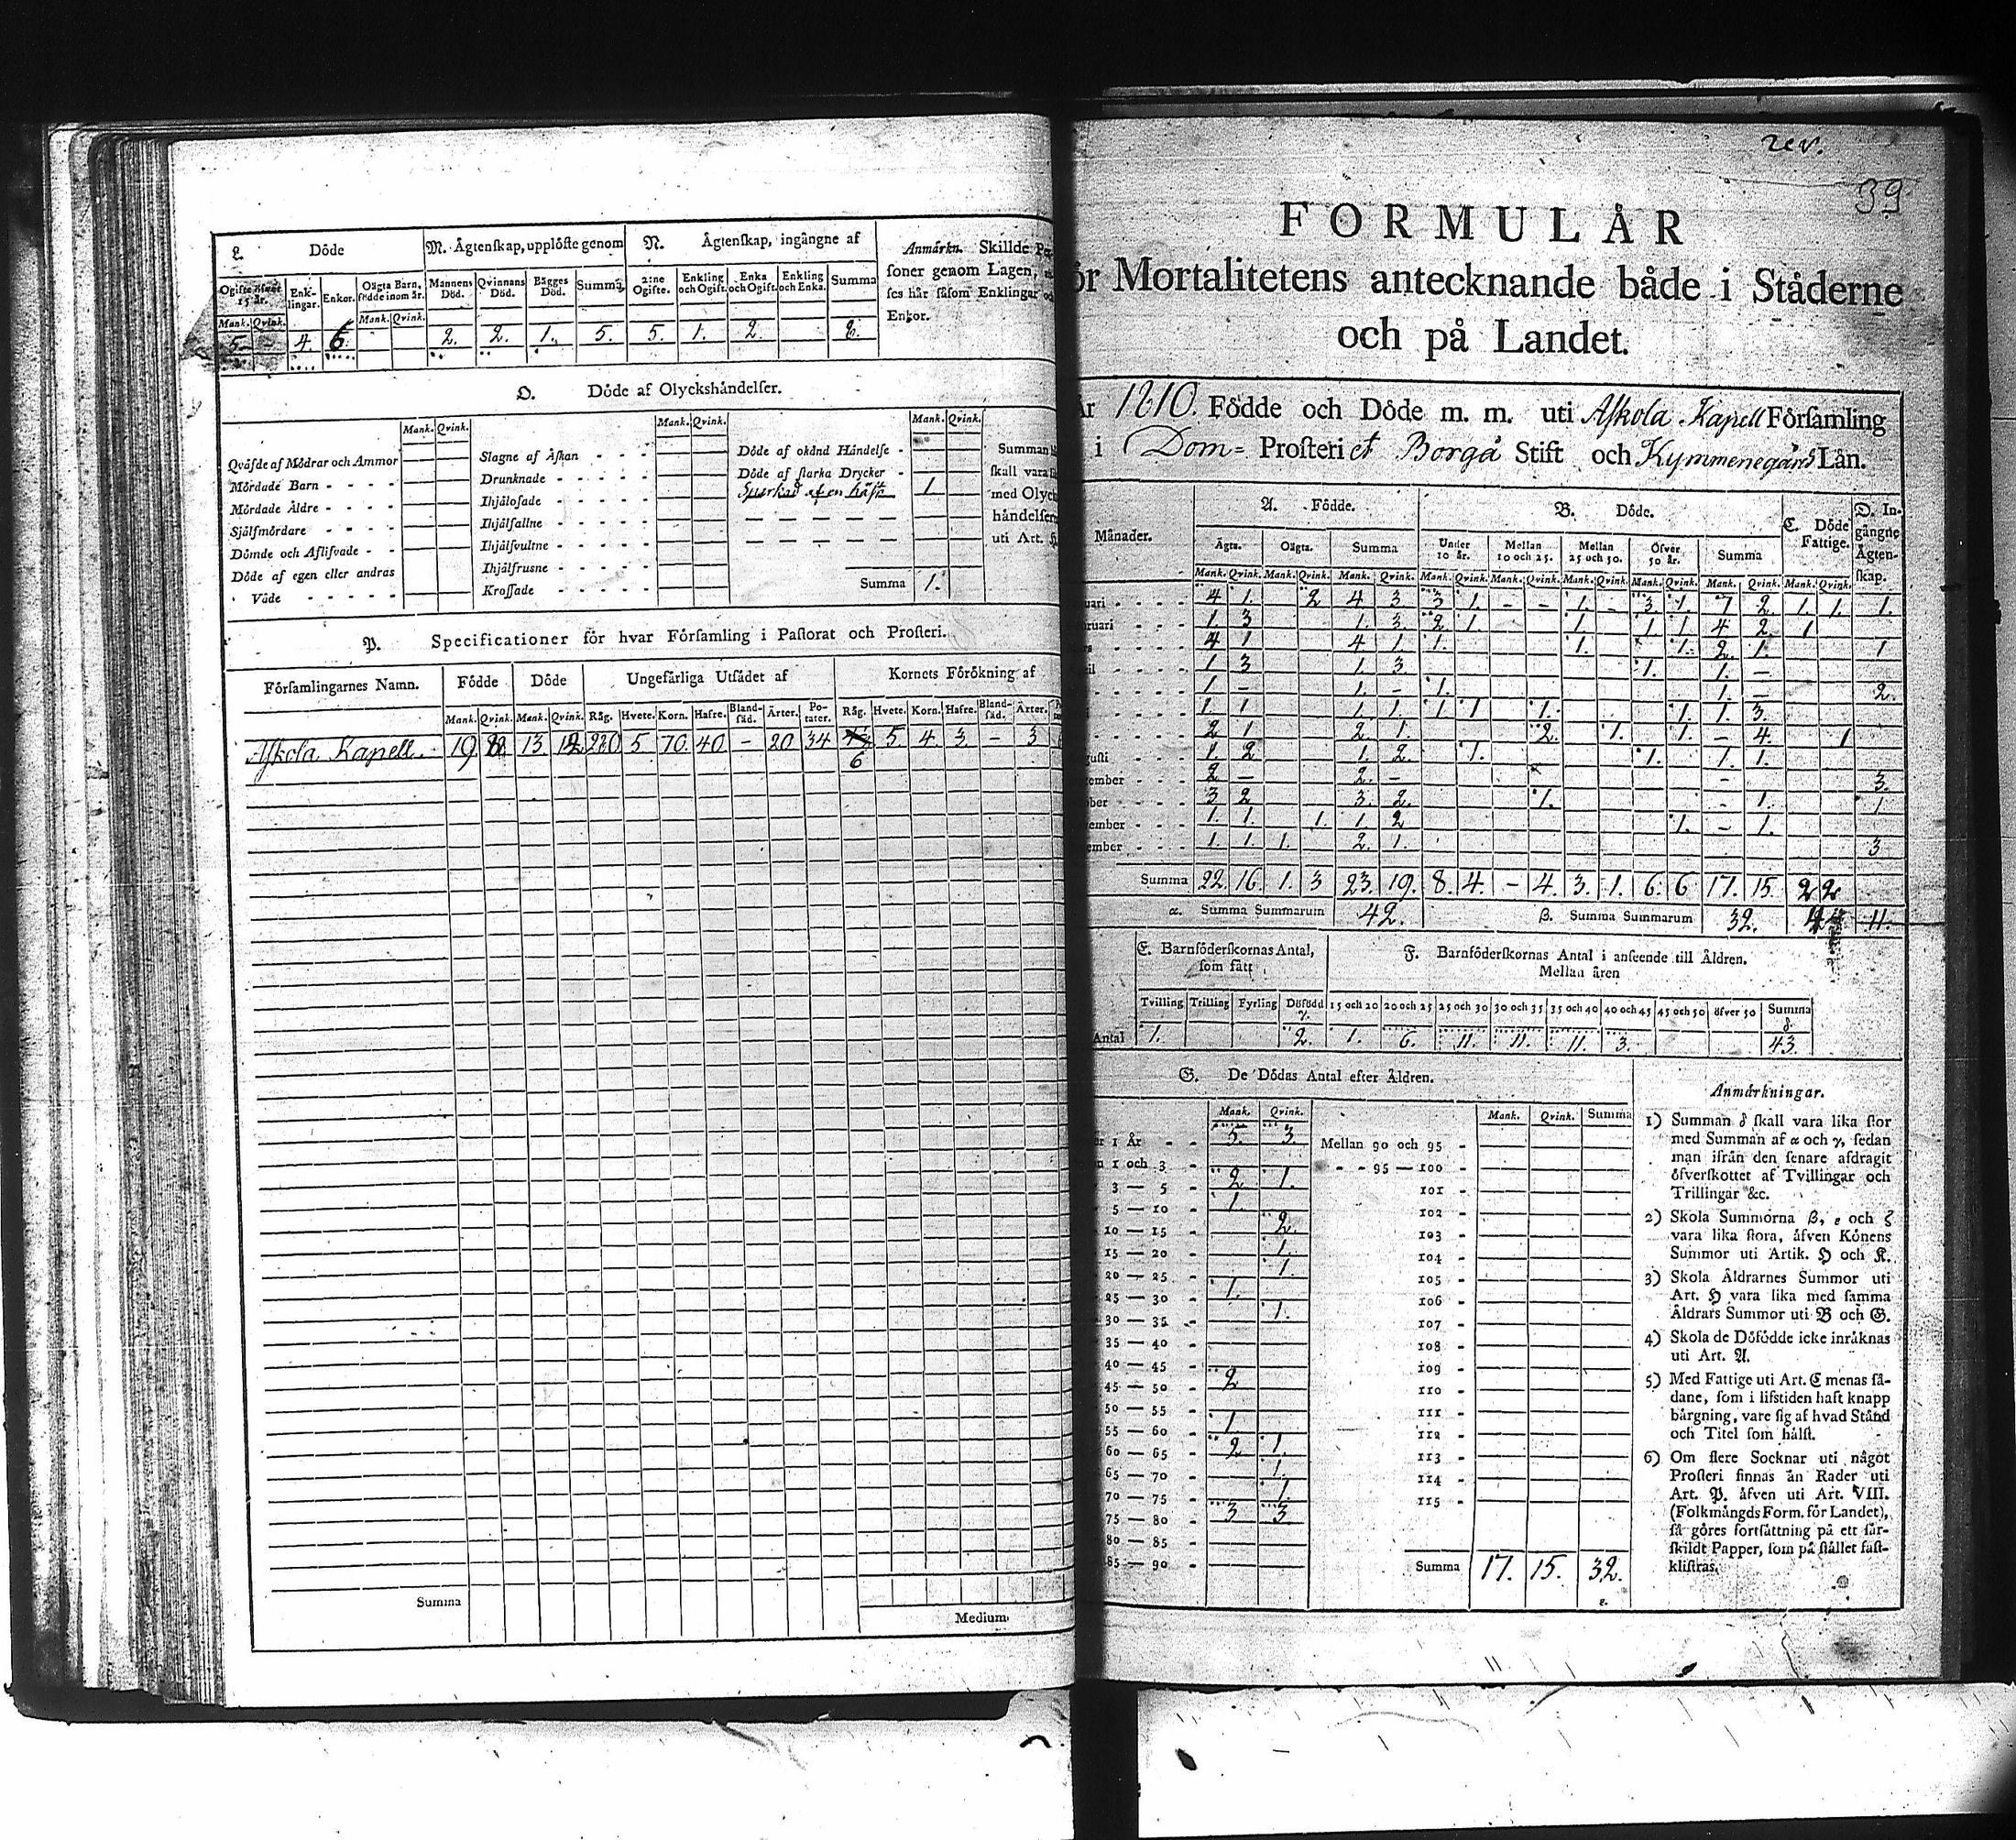 L. Döde
M. Ägtenskap, upplöste genom
N. Ägtenskap, ingångne af
Anmärkn. Skillde Per
soner genom Lagen,
ses här såsom Enklingar oc
Enkor.
Ogifte öfver 15 år. Enklingar. Enkor. Oägta Barn, födde inom år. Mannens Död. Qvinnans Död. Bägges Död. Summa 2:ne Ogifte. Enkling och Ogift. Enka och Ogift. Enkling och Enka. Summa
Mank. Qvink. Mank. Qvink.
5. - 4. 6. 2. 2. 1. 5. 5. 1. 2. 8.
O. Döde af Olyckshändelser.
Mank. Qvink. Mank. Qvink. Mank. Qvink.
Qväfde af Mödrar och Ammor
Mördade Barn - - - -
Mördade Äldre - - - -
Själfmördare - - - -
Dömde och Aflifvade - -
Döde af egen eller andras
Våde - - - - -
Slagne af Åskan - - -
Drunknade - - - - -
Ihjälofade - - - - -
Ihjälfallne - - - - -
Ihjälsvultne - - - - -
Ihjälfrusne - - - - -
Krossade - - - - -
Döde af okänd Händelse -
Döde af starka Drycker -
Sparkad af en häst 1
Summa 1.
Summan
skall vara
med Olyck
händelser
uti Art. H
P. Specificationer för hvar Församling i Pastorat och Prosteri.
Församlingarnes Namn. Födde Döde Ungefärliga Utsädet af Kornets Förökning af
Mank. Qvink. Mank. Qvink. Råg. Hvete. Korn. Hafre. Blandsäd. Ärter. Potater. Råg. Hvete. Korn. Hafre. Blandsäd. Ärter.
Askola Kapell. 19 13 12 220 5 70 40 - 20 34 5. 4. 3. - 3
6
Summa
Medium
rev.
39.
FORMULÄR
ör Mortalitetens antecknande både i Städerne
och på Landet.
År 1810. Födde och Döde m. m. uti Askola Kapell Församling
i Dom= Prosteri et Borgå Stift och Kymmenegårds Län.
Månader. A. Födde. B. Döde. C. Döde Fattige. D. Ingångne Ägtenskap.
Ägta. Oägta. Summa Under 10 år. Mellan 10 och 25. Mellan 25 och 50. Öfver 50 år. Summa
Mank. Qvink. Mank. Qvink. Mank. Qvink. Mank. Qvink. Mank. Qvink. Mank. Qvink. Mank. Qvink. Mank. Qvink. Mank. Qvink.
uari - - - - 4 1. 2 4 3 3 1. - - 1. - 3. 1. 7 2. 1. 1. 1.
ruari - - - 1. 3 1. 3. 2 1. 1 1. 1 4 2. 1
- - - - 4 1 4 1. 1. 1. 1. 2. 1. 1
il - - - - 1 3 1. 3. 1. 1. -
- - - - 1 - 1. - 1. 1. - 2.
1 1 1. 1. 1 1 1. 1. 1. 3.
2 1 2. 1. 2. 1. 1. - 4. 1
gusti - - - - 1. 2 1. 2. 1. 1. 1. 1.
tember - - - 2 - 2. - - 3.
ber - - - - 3 2 3. 2. 1. - 1. 1
vember - - - 1. 1. 1. 1. 2 1. - 1.
ember - - - 1. 1. 1. 2. 1. 3
Summa 22. 16. 1. 3 23. 19. 8. 4. - 4. 3. 1. 6. 6 17. 15. 2 2
α. Summa Summarum 42. β. Summa Summarum 32. 11.
E. Barnföderskornas Antal, som fått
F. Barnföderskornas Antal i anseende till Åldren.
Mellan åren
Tvilling Trilling Fyrling Döfödd 15 och 20 20 och 25 25 och 30 30 och 35 35 och 40 40 och 45 45 och 50 öfver 50 Summa
γ. δ.
Antal 1. 2. 1. 6. 11. 11. 11. 3. 43.
G. De Dödas Antal efter Åldren.
Mank. Qvink. Mank. Qvink. Summa
r 1 År - - 5. 3.
n 1 och 3 - 2 1.
3 — 5 - 1.
5 — 10 -
10 — 15 - 2.
15 — 20 - 1.
20 — 25 - 1.
25 — 30 - 1.
30 — 35 - 1.
35 — 40 -
40 — 45 -
45 — 50 - 2
50 — 55 -
55 — 60 - 1
60 — 65 - 2 1.
65 — 70 - 1.
70 — 75 - 1
75 — 80 - 3 3
80 — 85 -
85 — 90 -
Mellan 90 och 95 -
- - 95 — 100 -
101 -
102 -
103 -
104 -
105 -
106 -
107 -
108 -
109 -
110 -
111 -
112 -
113 -
114 -
115 -
Summa 17. 15. 32.
ε.
Anmärkningar.
1) Summan δ skall vara lika stor
med Summan af α och γ, sedan
man ifrån den senare afdragit
öfverskottet af Tvillingar och
Trillingar &c.
2) Skola Summorna β, ε och ζ
vara lika stora, äfven Könens
Summor uti Artik. H och K.
3) Skola Åldrarnes Summor uti
Art. H vara lika med samma
Åldrars Summor uti B och G.
4) Skola de Döfödde icke inräknas
uti Art. A.
5) Med Fattige uti Art. C menas så-
dane, som i lifstiden haft knapp
bärgning, vare sig af hvad Stånd
och Titel som hälst.
6) Om flere Socknar uti något
Prosteri finnas än Rader uti
Art. P. äfven uti Art. VIII.
(Folkmängds Form. för Landet),
så göres fortsättning på ett sär-
skildt Papper, som på stället fast-
klistras.